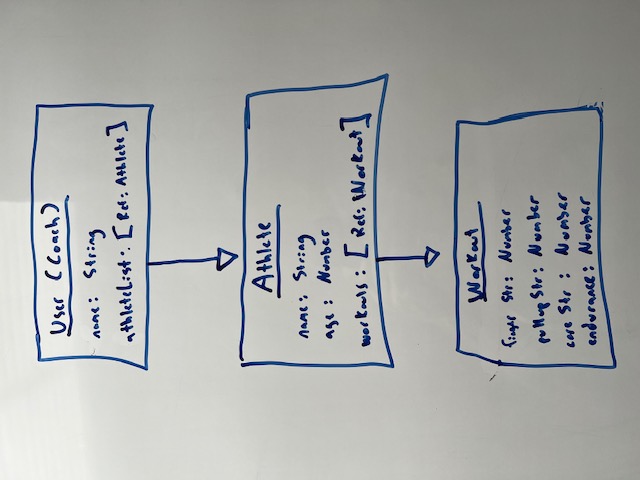 User (Coach)
name: String
athleteList: [Ref: Athlete]
Athlete
name: String
age: Number
workouts: [Ref: Workout]
Workout
finger Str: Number
pullup Str: Number
core Str: Number
endurance: Number